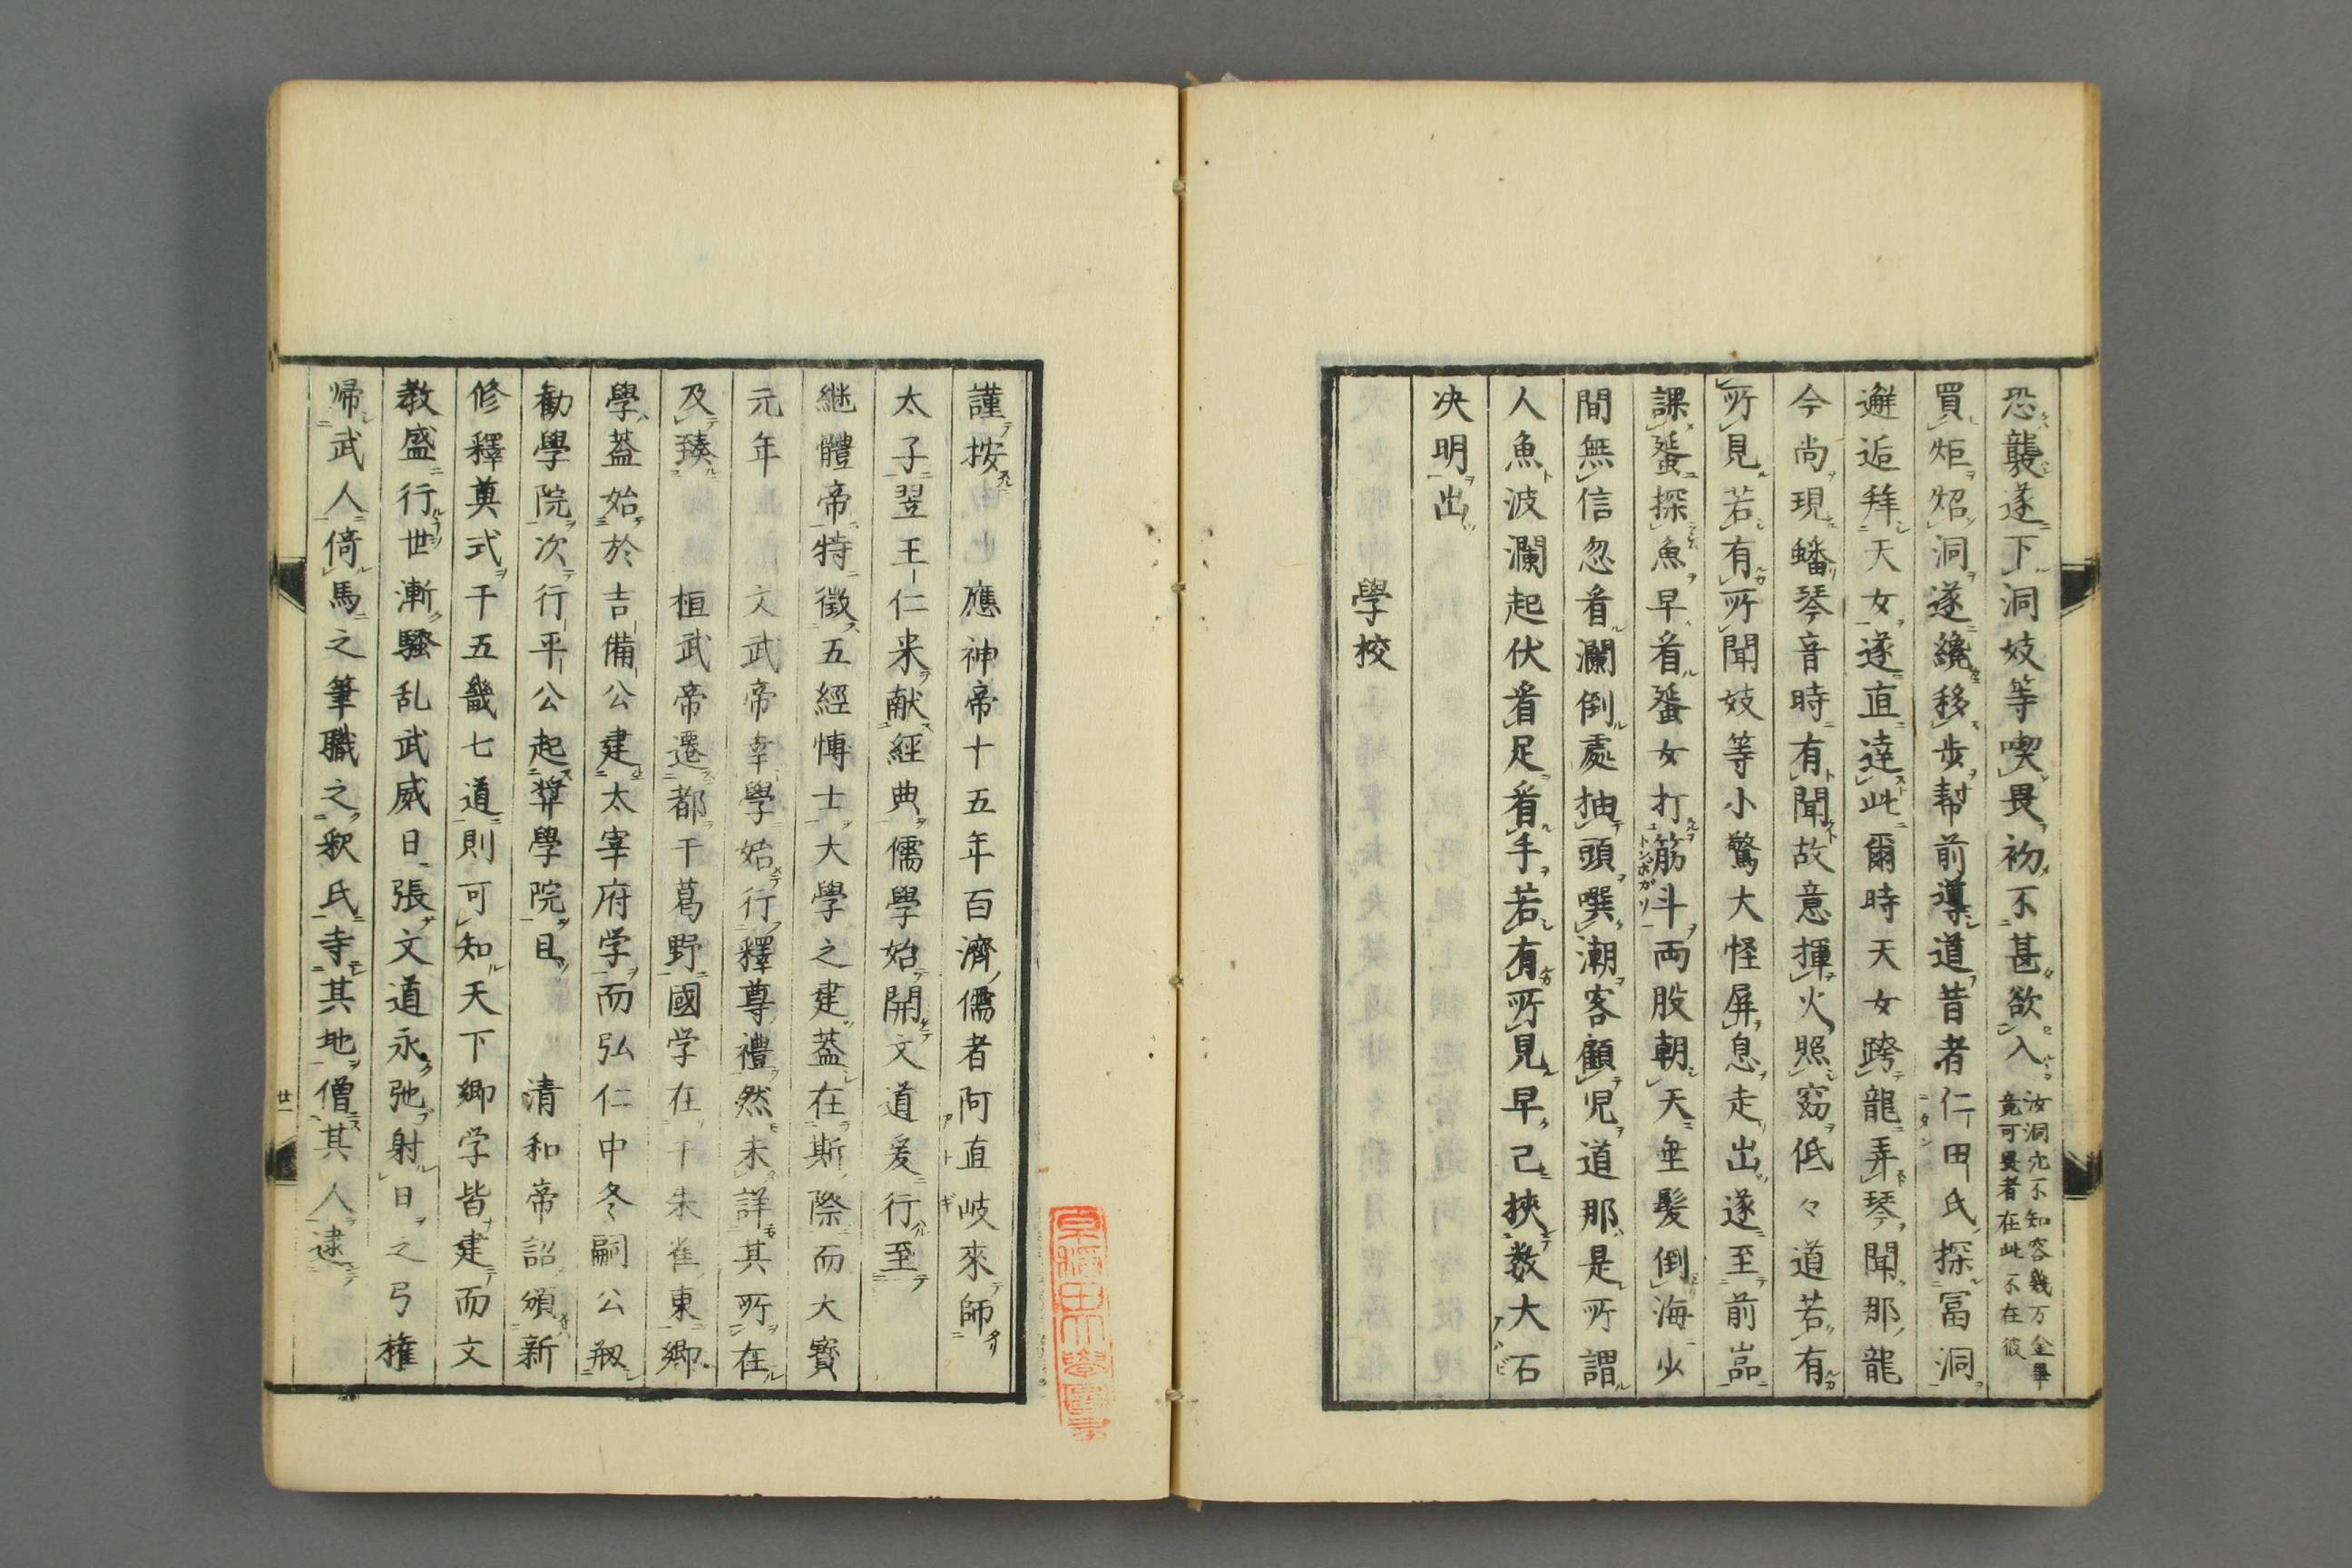 恐襲遂下洞妓等喫畏初不甚欲入汝洞尤不知容幾万金畢竟可畏者在此不在彼
買炬炤洞遂繞移步幇前導道昔者仁田氏探冨洞
邂逅拜天女遂直達此爾時天女跨龍弄琴聞那龍
今尚現蟠琴音時有聞故意揮火照窈低々道若有
所見若有所聞妓等小驚大怪屏息走出遂至前嵓
課蜑探魚早看蜑女打筋斗両股朝天垂髪倒海少
間無信忽看瀾倒處抽頭噀潮客顧児道那是所謂
人魚波瀾起伏看足看手若有所見早已挾数大石
决明出
學校
謹按應神帝十五年百濟儒者阿直岐來師
太子翌王仁来献經典儒學始開文道爰行至
継體帝特徴五經博士大學之建蓋在斯際而大寳
元年文武帝幸學始行釋尊禮然未詳其所在
及臻桓武帝遷都于葛野國学在于朱雀東郷
學蓋始於吉備公建太宰府学而弘仁中冬嗣公剏
勸學院次行平公起奨學院目清和帝詔頒新
修釋奠式于五畿七道則可知天下郷学皆建而文
教盛行世漸騷乱武威日張文道永弛射日之弓権
帰武人倚馬之筆職之釈氏寺其地僧其人逮
廿一
早稲田大學圖書